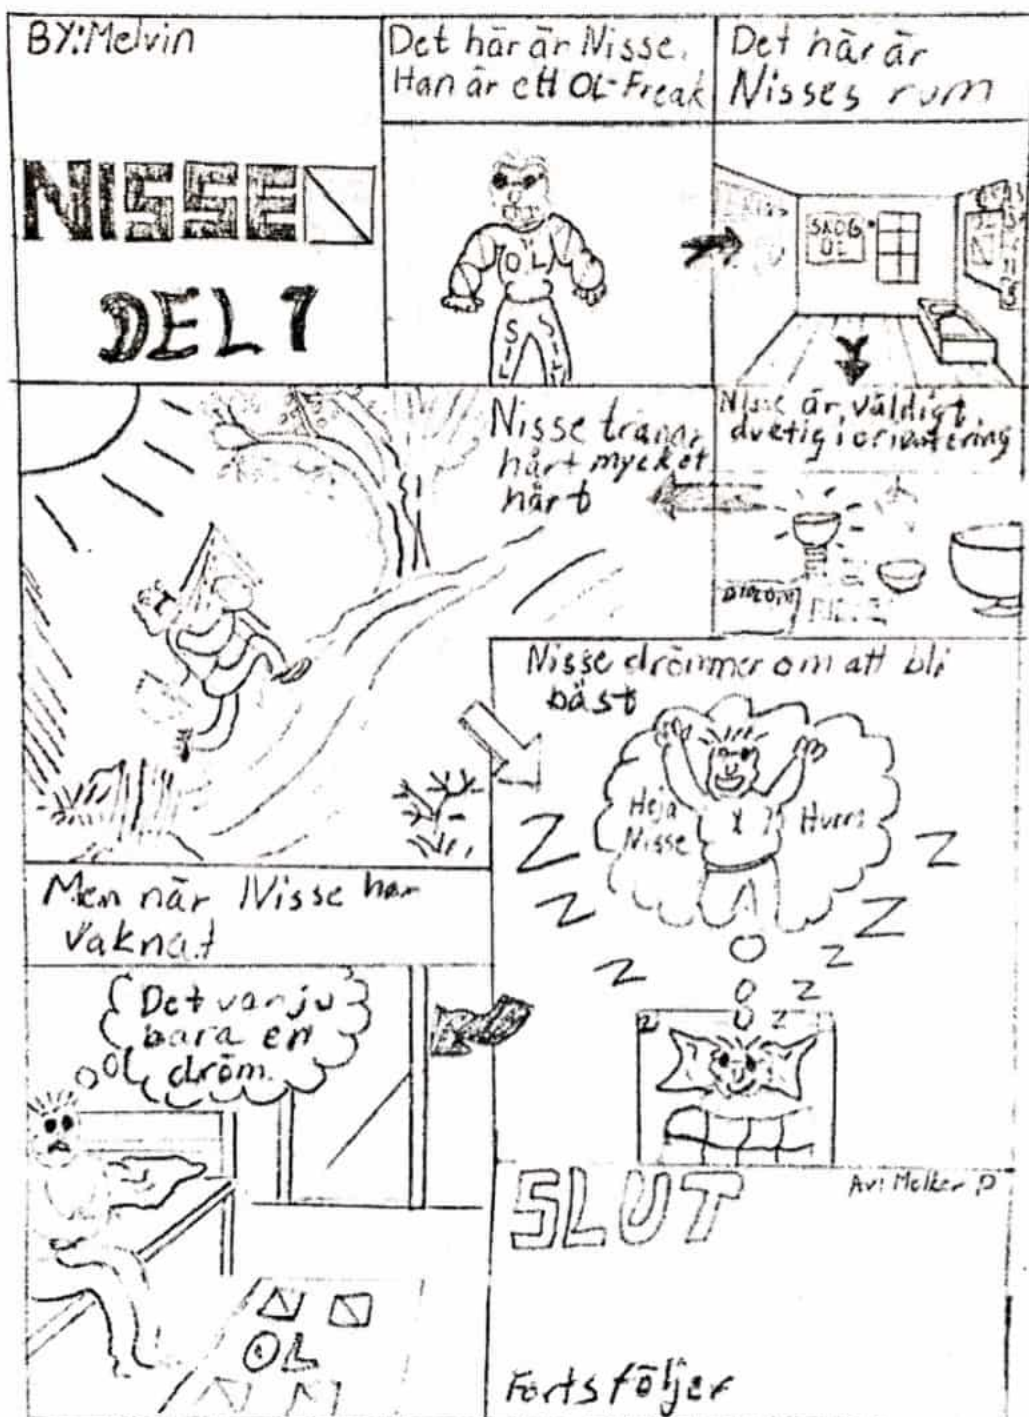 BY: Melvin
NISSE
DEL 1
Det här är Nisse.
Han är ett OL-Freak
OL
SIL
SIL
Det här är
Nisses rum
SKOG
OL
Nisse är väldigt
duetig i orientering
DIPLOM
Nisse tränar
hårt mycket
hårt
Nisse drömmer om att bli
bäst
Heja
Nisse
Hurra
Z
Z
Z
Z
Z
Z
Z
Z
Z
Men när Nisse har
vaknat
Det var ju
bara en
dröm.
OL
SLUT
Av: Melker P
Forts följer